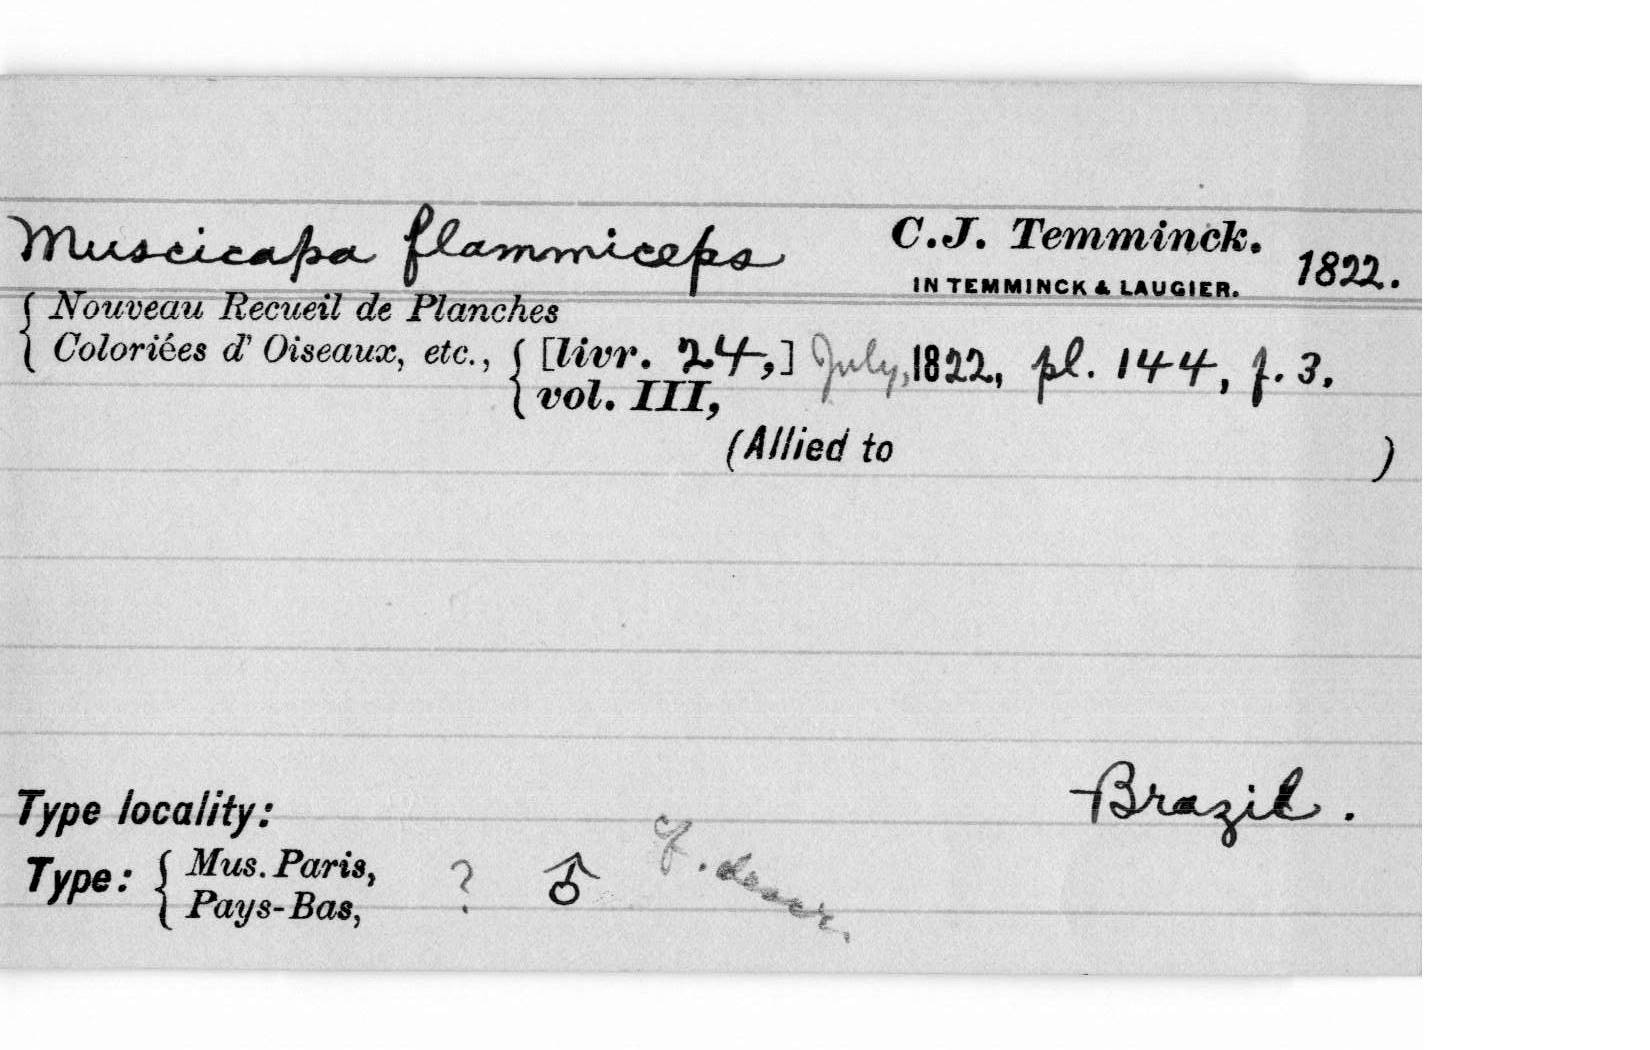 Muscicapa flammiceps C.J. Temminck. 1822.
IN TEMMINCK & LAUGIER.
{ Nouveau Recueil de Planches
Coloriées d' Oiseaux, etc., { [livr. 24,] July, 1822, pl. 144, f. 3.
vol. III,
(Allied to )
Type locality: Brazil.
Type: { Mus. Paris, ? ♂ descr.
Pays-Bas,